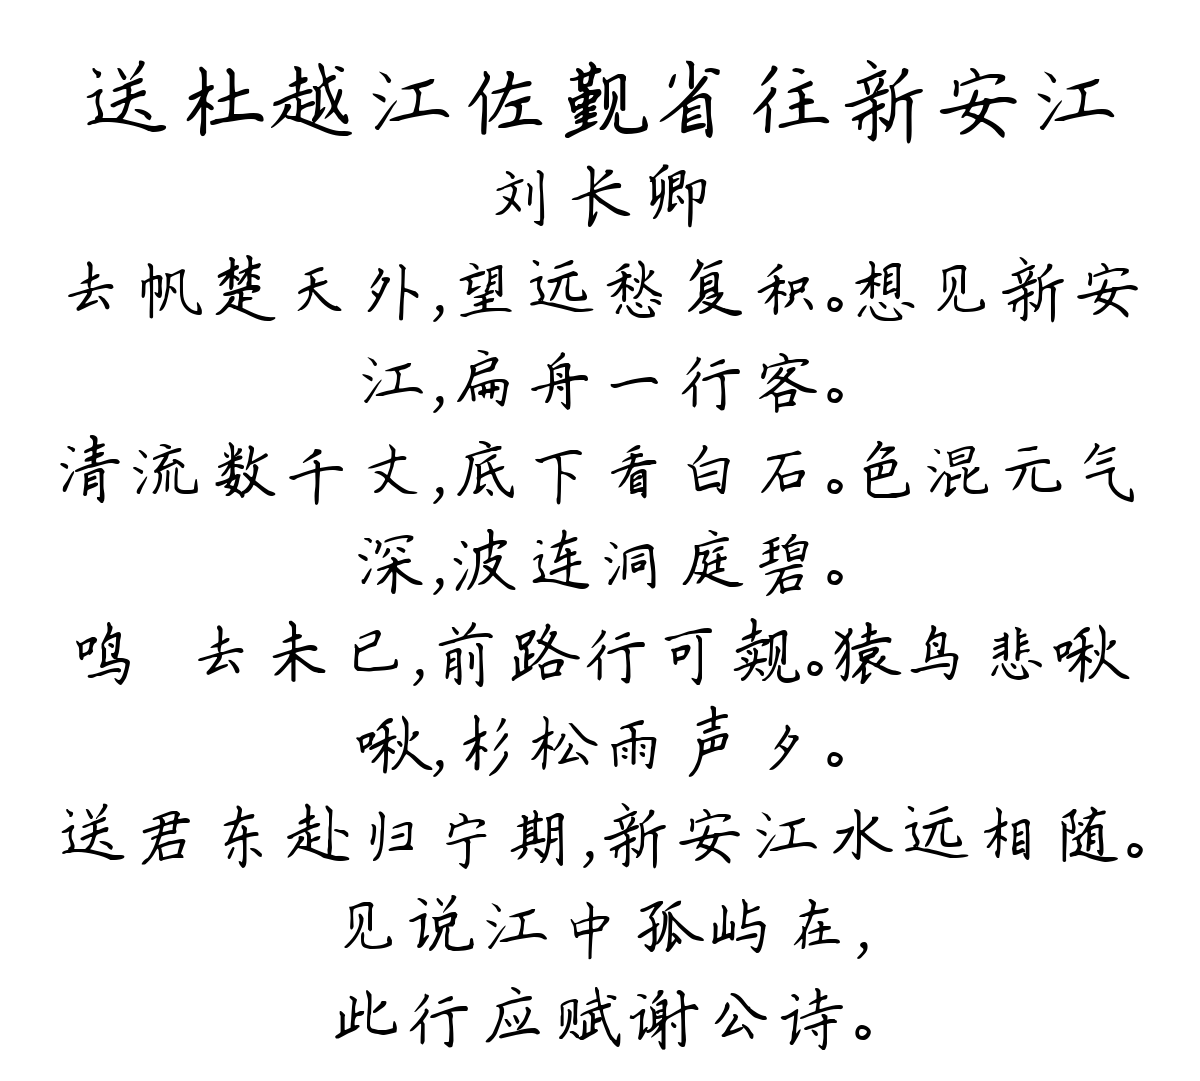 送杜越江佐觐省往新安江
刘长卿
去帆楚天外,望远愁复积。想见新安
江,扁舟一行客。
清流数千丈,底下看白石。色混元气
深,波连洞庭碧。
鸣 去未已,前路行可觌。猿鸟悲啾
啾,杉松雨声夕。
送君东赴归宁期,新安江水远相随。
见说江中孤屿在,
此行应赋谢公诗。